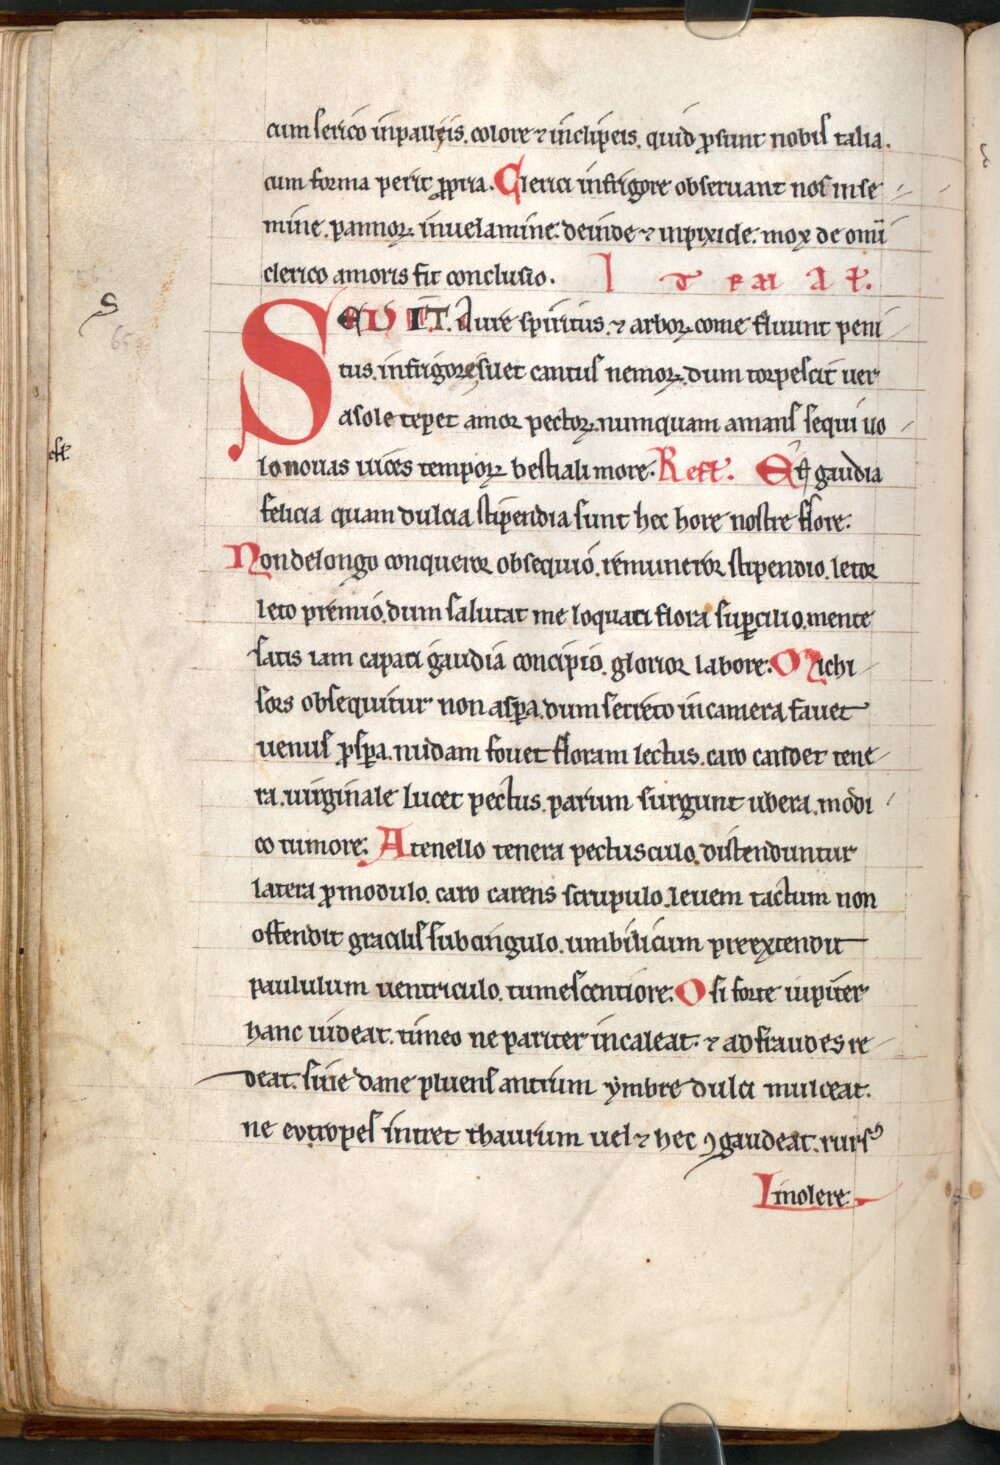 cum serico inpallijs. colore ⁊ inclipeis. quid ꝓsunt nobis talia.
cum forma perit ꝓpria. Clerici infrigore obseruant nos in se
mine. pannoꝝ inuelamine. deinde ⁊ inpixide. mox de omī
clerico amoris fit conclusio. I T E M A ł.
SEVIT. aure spiritus. ⁊ arboꝝ come fluunt peni
tus. infrigore suet cantus nemoꝝ. dum torpescit uer
asole tepet amor pectoꝝ. numquam amans sequi uo
lo nouas uices tempoꝝ bestiali more. Refł. Qͣꝫ gaudia
felicia quam dulcia stipendia sunt hec hore nostre flore.
Non de longo conqueror obsequio. remuneror stipendio. letor
leto premio. dum salutat me loquaci flora suꝑcilio. mente
satis iam capaci gaudia concipio. glorior labore. Michi
sors obsequitur non asꝑa. dum secreto in camera fauet
uenus ꝓsꝑa. nudam fouet floram lectus. caro candet tene
ra. uirginale lucet pectus. parum surgunt ubera. modi
co tumore. A tenello tenera pectusculo. distenduntur
latera ꝓ modulo. caro carens scrupulo. leuem tactum non
offendit gracilis sub cingulo. umbilicum preextendit
paululum uentriculo. tumescentiore. O si forte iupiter
hanc uideat. timeo ne pariter incaleat. ⁊ ad fraudes re
deat. siue dane pluens antrum ymbre dulci mulceat.
ne eutropes intret thaurum uel ⁊ hec ꝯgaudeat. rursꝰ
In olere.
S